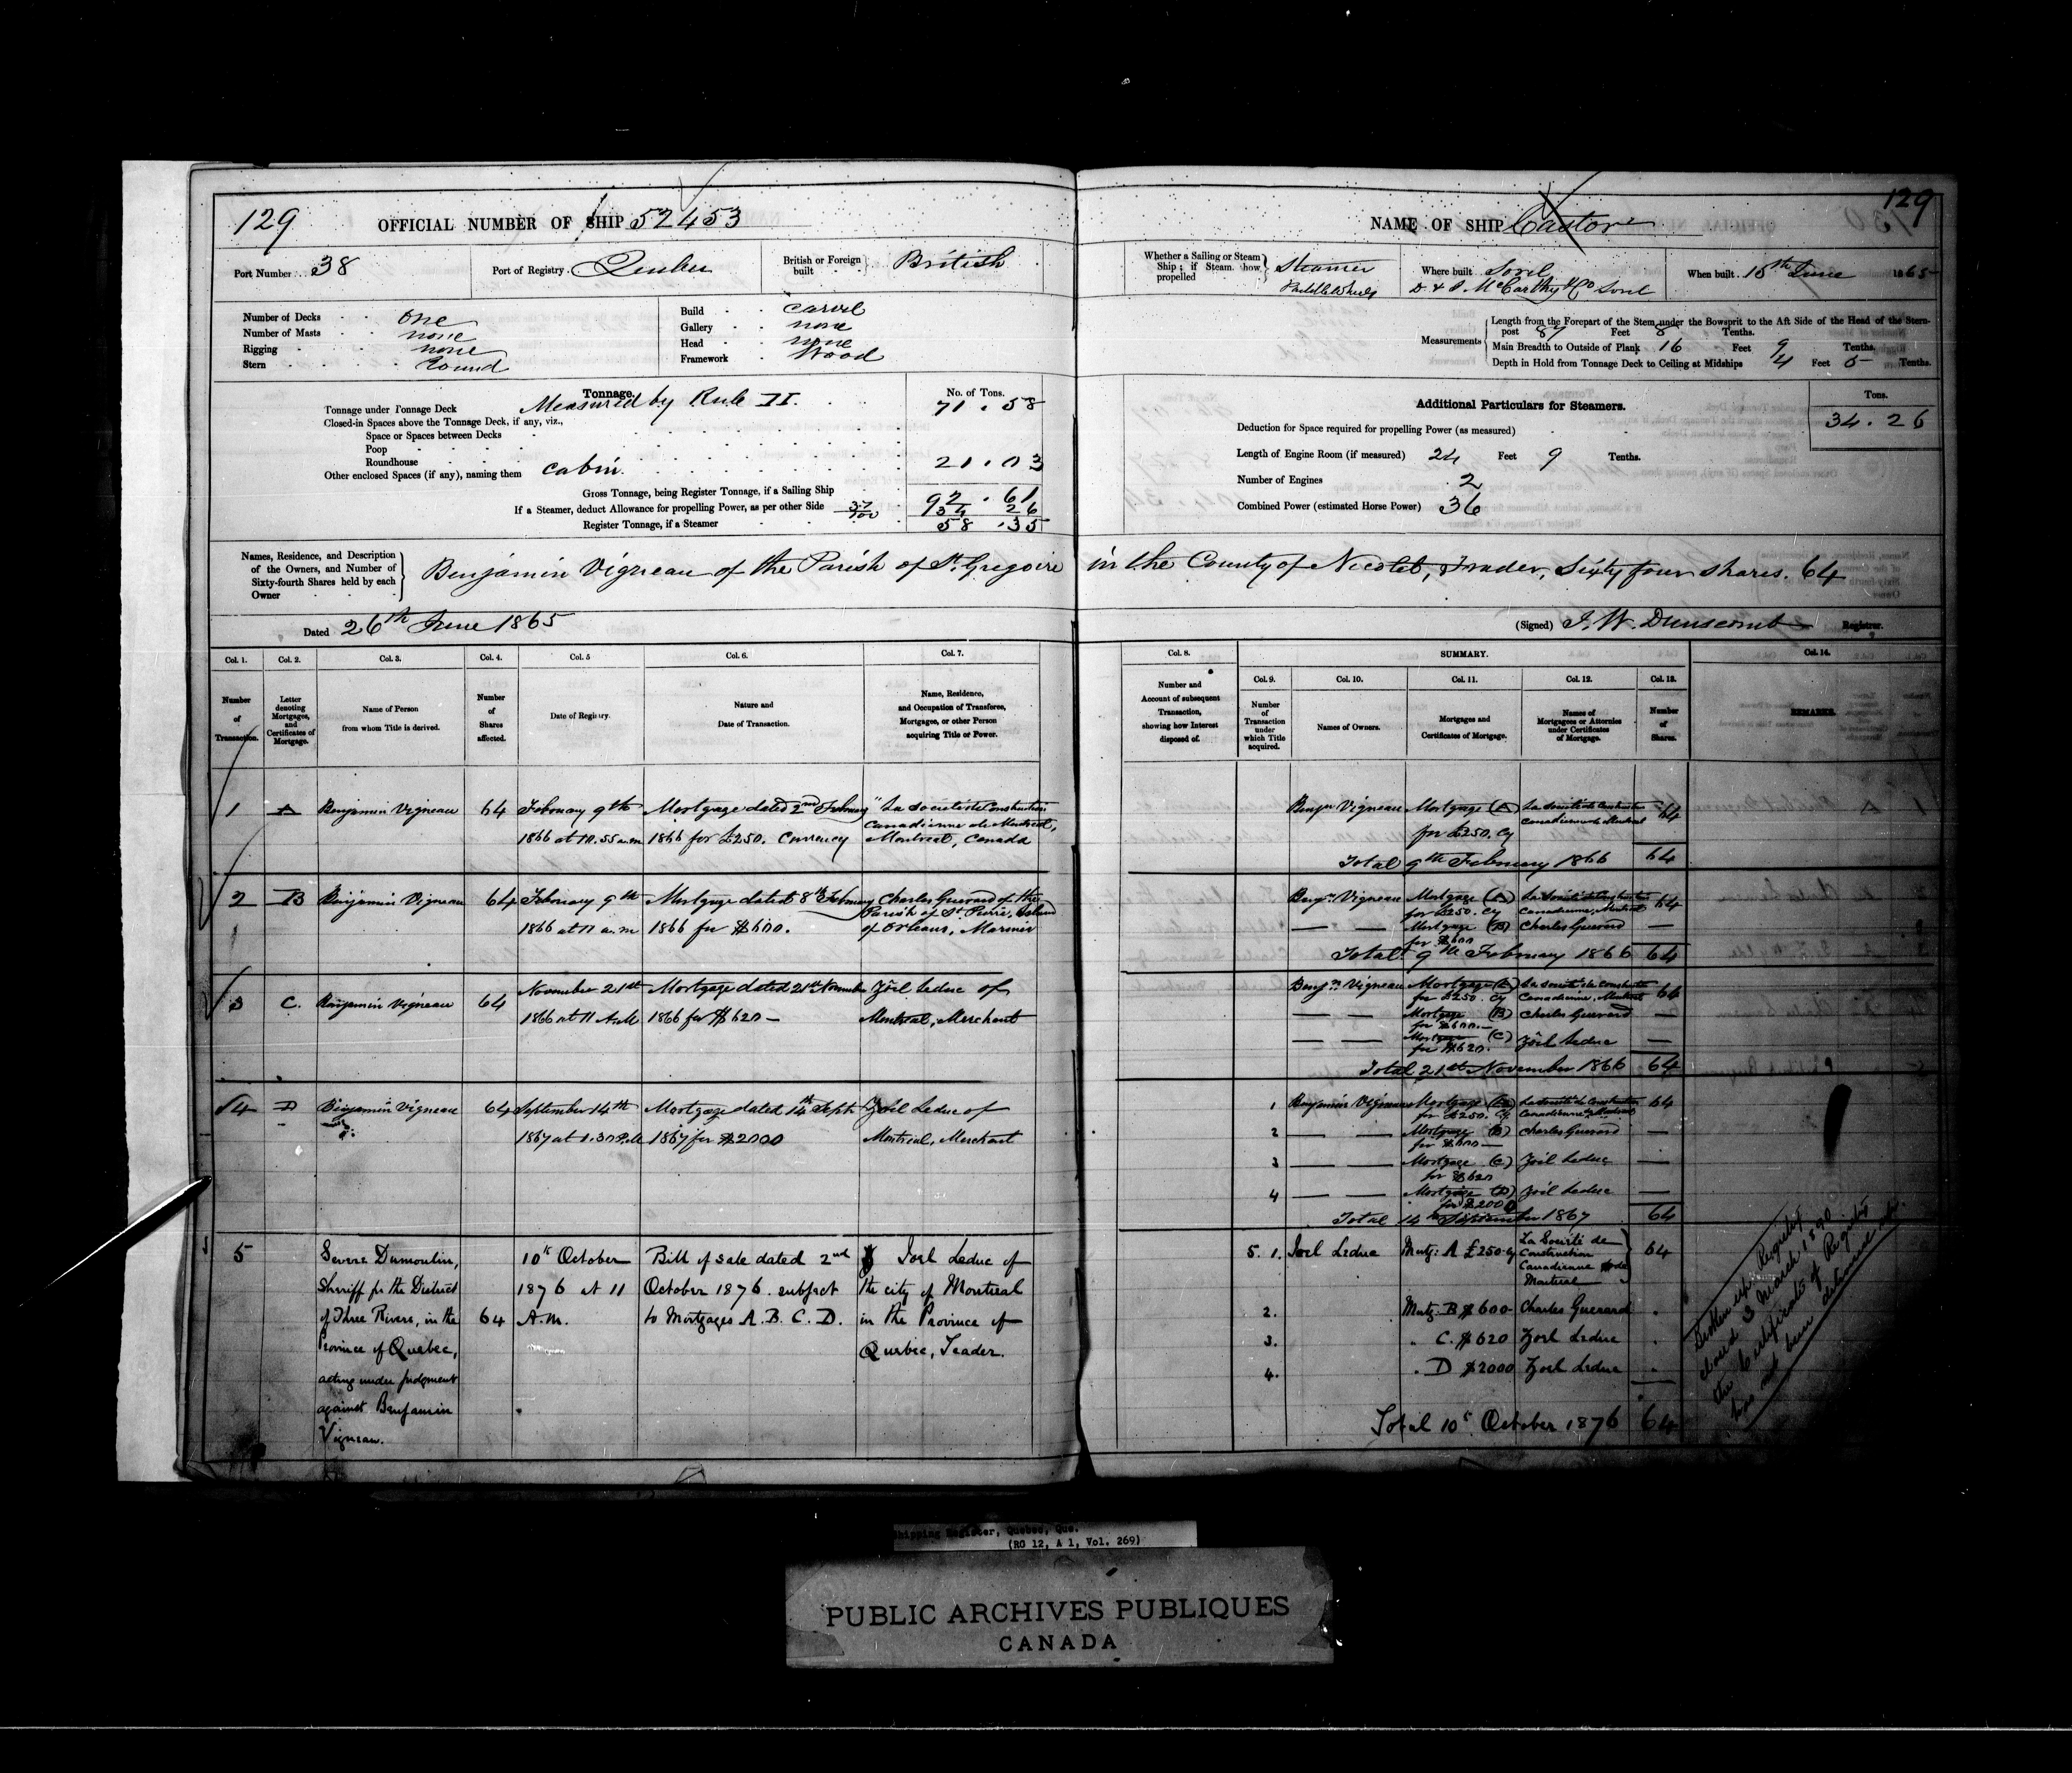 129
OFFICIAL NUMBER OF SHIP 52453
Port Number 38
Port of Registry. Quebec
British or Foreign built British
Number of Decks one
Number of Masts none
Rigging none
Stern Round
Build carvel
Gallery none
Head none
Framework Wood
Tonnage.
Measured by Rule II.
No. of Tons.
Tonnage under Tonnage Deck 71.58
Closed-in Spaces above the Tonnage Deck, if any, viz.,
Space or Spaces between Decks
Poop
Roundhouse
Other enclosed Spaces (if any), naming them cabin. 21.03
Gross Tonnage, being Register Tonnage, if a Sailing Ship 92.61
If a Steamer, deduct Allowance for propelling Power, as per other Side 37/100 34 26
Register Tonnage, if a Steamer 58.35
129
NAME OF SHIP Castor
Whether a Sailing or Steam Ship; if Steam. how propelled Steamer Paddlewheels
Where built Sorel
D. & J. McCarthy & Co Sorel
When built 15th June 1865
Measurements
Length from the Forepart of the Stem under the Bowsprit to the Aft Side of the Head of the Stern-
post 87 Feet 8 Tenths.
Main Breadth to Outside of Plank 16 Feet 9 Tenths.
Depth in Hold from Tonnage Deck to Ceiling at Midships 4 Feet 5 Tenths.
Additional Particulars for Steamers.
Tons.
Deduction for Space required for propelling Power (as measured) 34.26
Length of Engine Room (if measured) 24 Feet 9 Tenths.
Number of Engines 2
Combined Power (estimated Horse Power) 36
Names, Residence, and Description of the Owners, and Number of Sixty-fourth Shares held by each Owner
Benjamin Vigneau of the Parish of St. Gregoire in the County of Nicolet, Trader, Sixty four shares. 64
Dated 26th June 1865
(Signed) J. W. Dunscomb Registrar.
Col. 1. Col. 2. Col. 3. Col. 4. Col. 5 Col. 6. Col. 7.
Number of Transaction.
Letter denoting Mortgages, and Certificates of Mortgage.
Name of Person from whom Title is derived.
Number of Shares affected.
Date of Registry.
Nature and Date of Transaction.
Name, Residence, and Occupation of Transferee, Mortgagee, or other Person acquiring Title or Power.
Col. 8. SUMMARY. Col. 14.
Col. 9. Col. 10. Col. 11. Col. 12. Col. 13.
Number and Account of subsequent Transaction, showing how Interest disposed of.
Number of Transaction under which Title acquired.
Names of Owners.
Mortgages and Certificates of Mortgage.
Names of Mortgagees or Attornies under Certificates of Mortgage.
Number of Shares.
REMARKS.
1 A Benjamin Vigneau 64 February 9th Mortgage dated 2nd February "La Societe de Construction
Canadienne de Montreal,
1866 at 10.55 a.m 1866 for £250. Currency Montreal, Canada
2 B Benjamin Vigneau 64 February 9th Mortgage dated 8th February Charles Guerard of the
Parish of St. Pierre, Island
1866 at 11 a.m 1866 for $600. of Orleans, Mariner
3 C. Benjamin Vigneau 64 November 21st Mortgage dated 21st November Zoël Leduc of
1866 at 11 A.M 1866 for $620 — Montreal, Merchant
4 D Benjamin Vigneau 64 September 14th Mortgage dated 14th Sept. Zoël Leduc of
1867 at 1.30 P.M 1867 for $2000 Montreal, Merchant
5 Severe Dumoulin, 10th October Bill of sale dated 2nd Joel Leduc of
Sheriff for the District 1876 at 11 October 1876. subject the city of Montreal
of Three Rivers, in the 64 A.M. to Mortgages A. B. C. D. in the Province of
Province of Quebec, Quebec, Trader.
acting under judgment
against Benjamin
Vigneau.
Benjn Vigneau Mortgage (A) La Societe de Construction 64
Canadienne de Montreal
for £250. Cy
Total 9th February 1866 64
Benjn Vigneau Mortgage (A) La Societe de Construction 64
for £250. Cy Canadienne, Montreal
Mortgage (B) Charles Guerard —
for $600
Total 9th February 1866 64
Benjn Vigneau Mortgage (A) La Societe de Construction 64
for £250. Cy Canadienne, Montreal
Mortgage (B) Charles Guerard —
for $600.—
Mortgage (C) Zoël Leduc —
for $620.
Total 21st November 1866 64
1 Benjamin Vigneau Mortgage (A) La Societe de Construction 64
for £250. Cy. Canadienne de Montreal
2 Mortgage (B) Charles Guerard —
for $600 —
3 Mortgage (C) Zoël Leduc —
for $620
4 Mortgage (D) Zoël Leduc —
for $2000
Total 14th September 1867 64
5. 1. Joel Leduc Mortg: A £250 Cy La Société de Construction Canadienne de Montreal 64
2. Mortg. B $600 Charles Guerard
3. " C. $620 Zoel Leduc
4. " D $2000 Zoel Leduc
Total 10th October 1876 64
Broken up. Registry
closed 3 March 1890
the Certificate of Registry
has not been delivered up.
Shipping Register, Quebec, Que.
(RG 12, A 1, Vol. 269)
PUBLIC ARCHIVES PUBLIQUES
CANADA